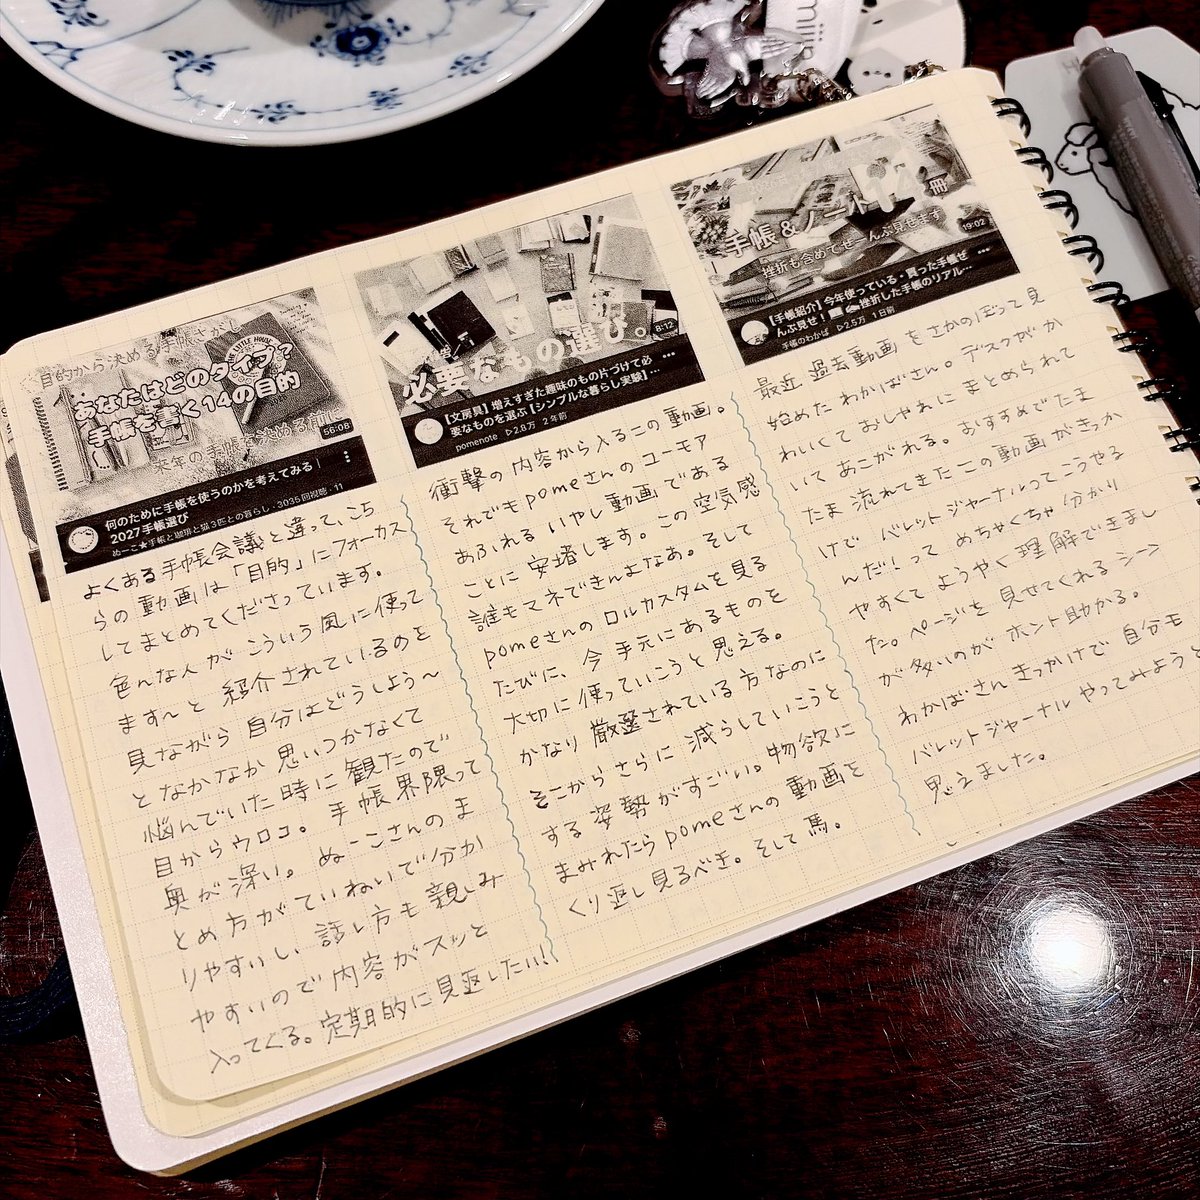 目的から決める手帳さがし
あなたはどのタイプ?
手帳を書く14の目的
来年の手帳を決める前に
56:08
何のために手帳を使うのかを考えてみる|
2027手帳選び
ぬーこ★手帳と珈琲と猫3匹との暮らし・3035回視聴・11
よくある手帳会議と違って、こち
らの動画は「目的」にフォーカス
してまとめてくださっています。
色んな人がこういう風に使って
ます〜と紹介されているのを
見ながら自分はどうしよう〜
となかなか思いつかなくて
悩んでいた時に観たので
目からウロコ。手帳界隈って
奥が深い。ぬーこさんのま
とめ方がていねいで分か
りやすいし話し方も親しみ
やすいので内容がスッと
入ってくる。定期的に見返したい!
必要なもの選び。
8:12
【文房具】増えすぎた趣味のもの片づけて必
要なものを選ぶ【シンプルな暮らし実験】…
pomenote ▷2.8万 2年前
衝撃の内容から入るこの動画。
それでもpomeさんのユーモア
あふれるいやし動画である
ことに安堵します。この空気感
誰もマネできんよなあ。そして
pomeさんのロルカスタムを見る
たびに、今手元にあるものを
大切に使っていこうと思える。
かなり厳選されている方なのに
そこからさらに減らしていこうと
する姿勢がすごい。物欲に
まみれたらpomeさんの動画を
くり返し見るべき。そして馬。
手帳&ノート14冊
挫折も含めてぜーんぶ見せます
19:02
【手帳紹介】今年使っている・買った手帳ぜ
んぶ見せ! 挫折した手帳のリアル…
手帳のわかば ▷2.5万 1日前
最近過去動画をさかのぼって見
始めたわかばさん。デスクがか
わいくておしゃれにまとめられて
いてあこがれる。おすすめでたま
たま流れてきたこの動画がきっか
けで「バレットジャーナルってこうやる
んだ!」ってめちゃくちゃ分かり
やすくてようやく理解できまし
た。ページを見せてくれるシーン
が多いのがホント助かる。
わかばさんきっかけで自分も
バレットジャーナルやってみようと
思えました。